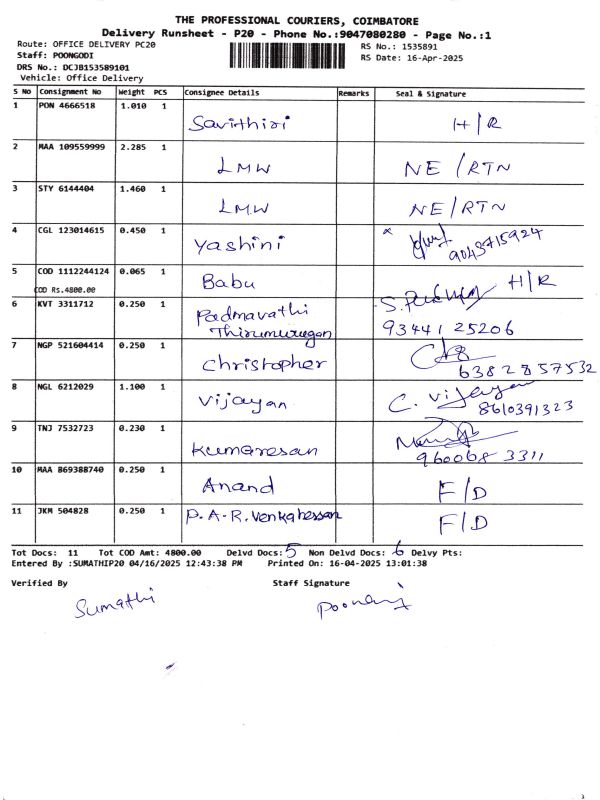 THE PROFESSIONAL COURIERS, COIMBATORE
Delivery Runsheet - P20 - Phone No.:9047080280 - Page No.:1
Route: OFFICE DELIVERY PC20 RS No.: 1535891
Staff: POONGODI RS Date: 16-Apr-2025
DRS No.: DCJB153589101
Vehicle: Office Delivery
S No Consignment No Weight PCS Consignee Details Remarks Seal & Signature
1 PON 4666518 1.010 1 Savithiri H/R
2 MAA 109559999 2.285 1 LMW NE/RTN
3 STY 6144404 1.460 1 LMW NE/RTN
4 CGL 123014615 0.450 1 Yashini x 9043715924
5 COD 1112244124 0.065 1 Babu H/R
COD Rs.4800.00
6 KVT 3311712 0.250 1 Padmavathi
Thirumurugan 93441 25206
7 NGP 521604414 0.250 1 Christopher 6382857532
8 NGL 6212029 1.100 1 Vijayan C. Vijayan
8610391323
9 TNJ 7532723 0.230 1 Kumaresan 960068 3311
10 MAA 869388740 0.250 1 Anand F/D
11 JKM 504828 0.250 1 P.A.R.Venkatessan F/D
Tot Docs: 11 Tot COD Amt: 4800.00 Delvd Docs: 5 Non Delvd Docs: 6 Delvy Pts:
Entered By :SUMATHIP20 04/16/2025 12:43:38 PM Printed On: 16-04-2025 13:01:38
Verified By Staff Signature
Sumathi